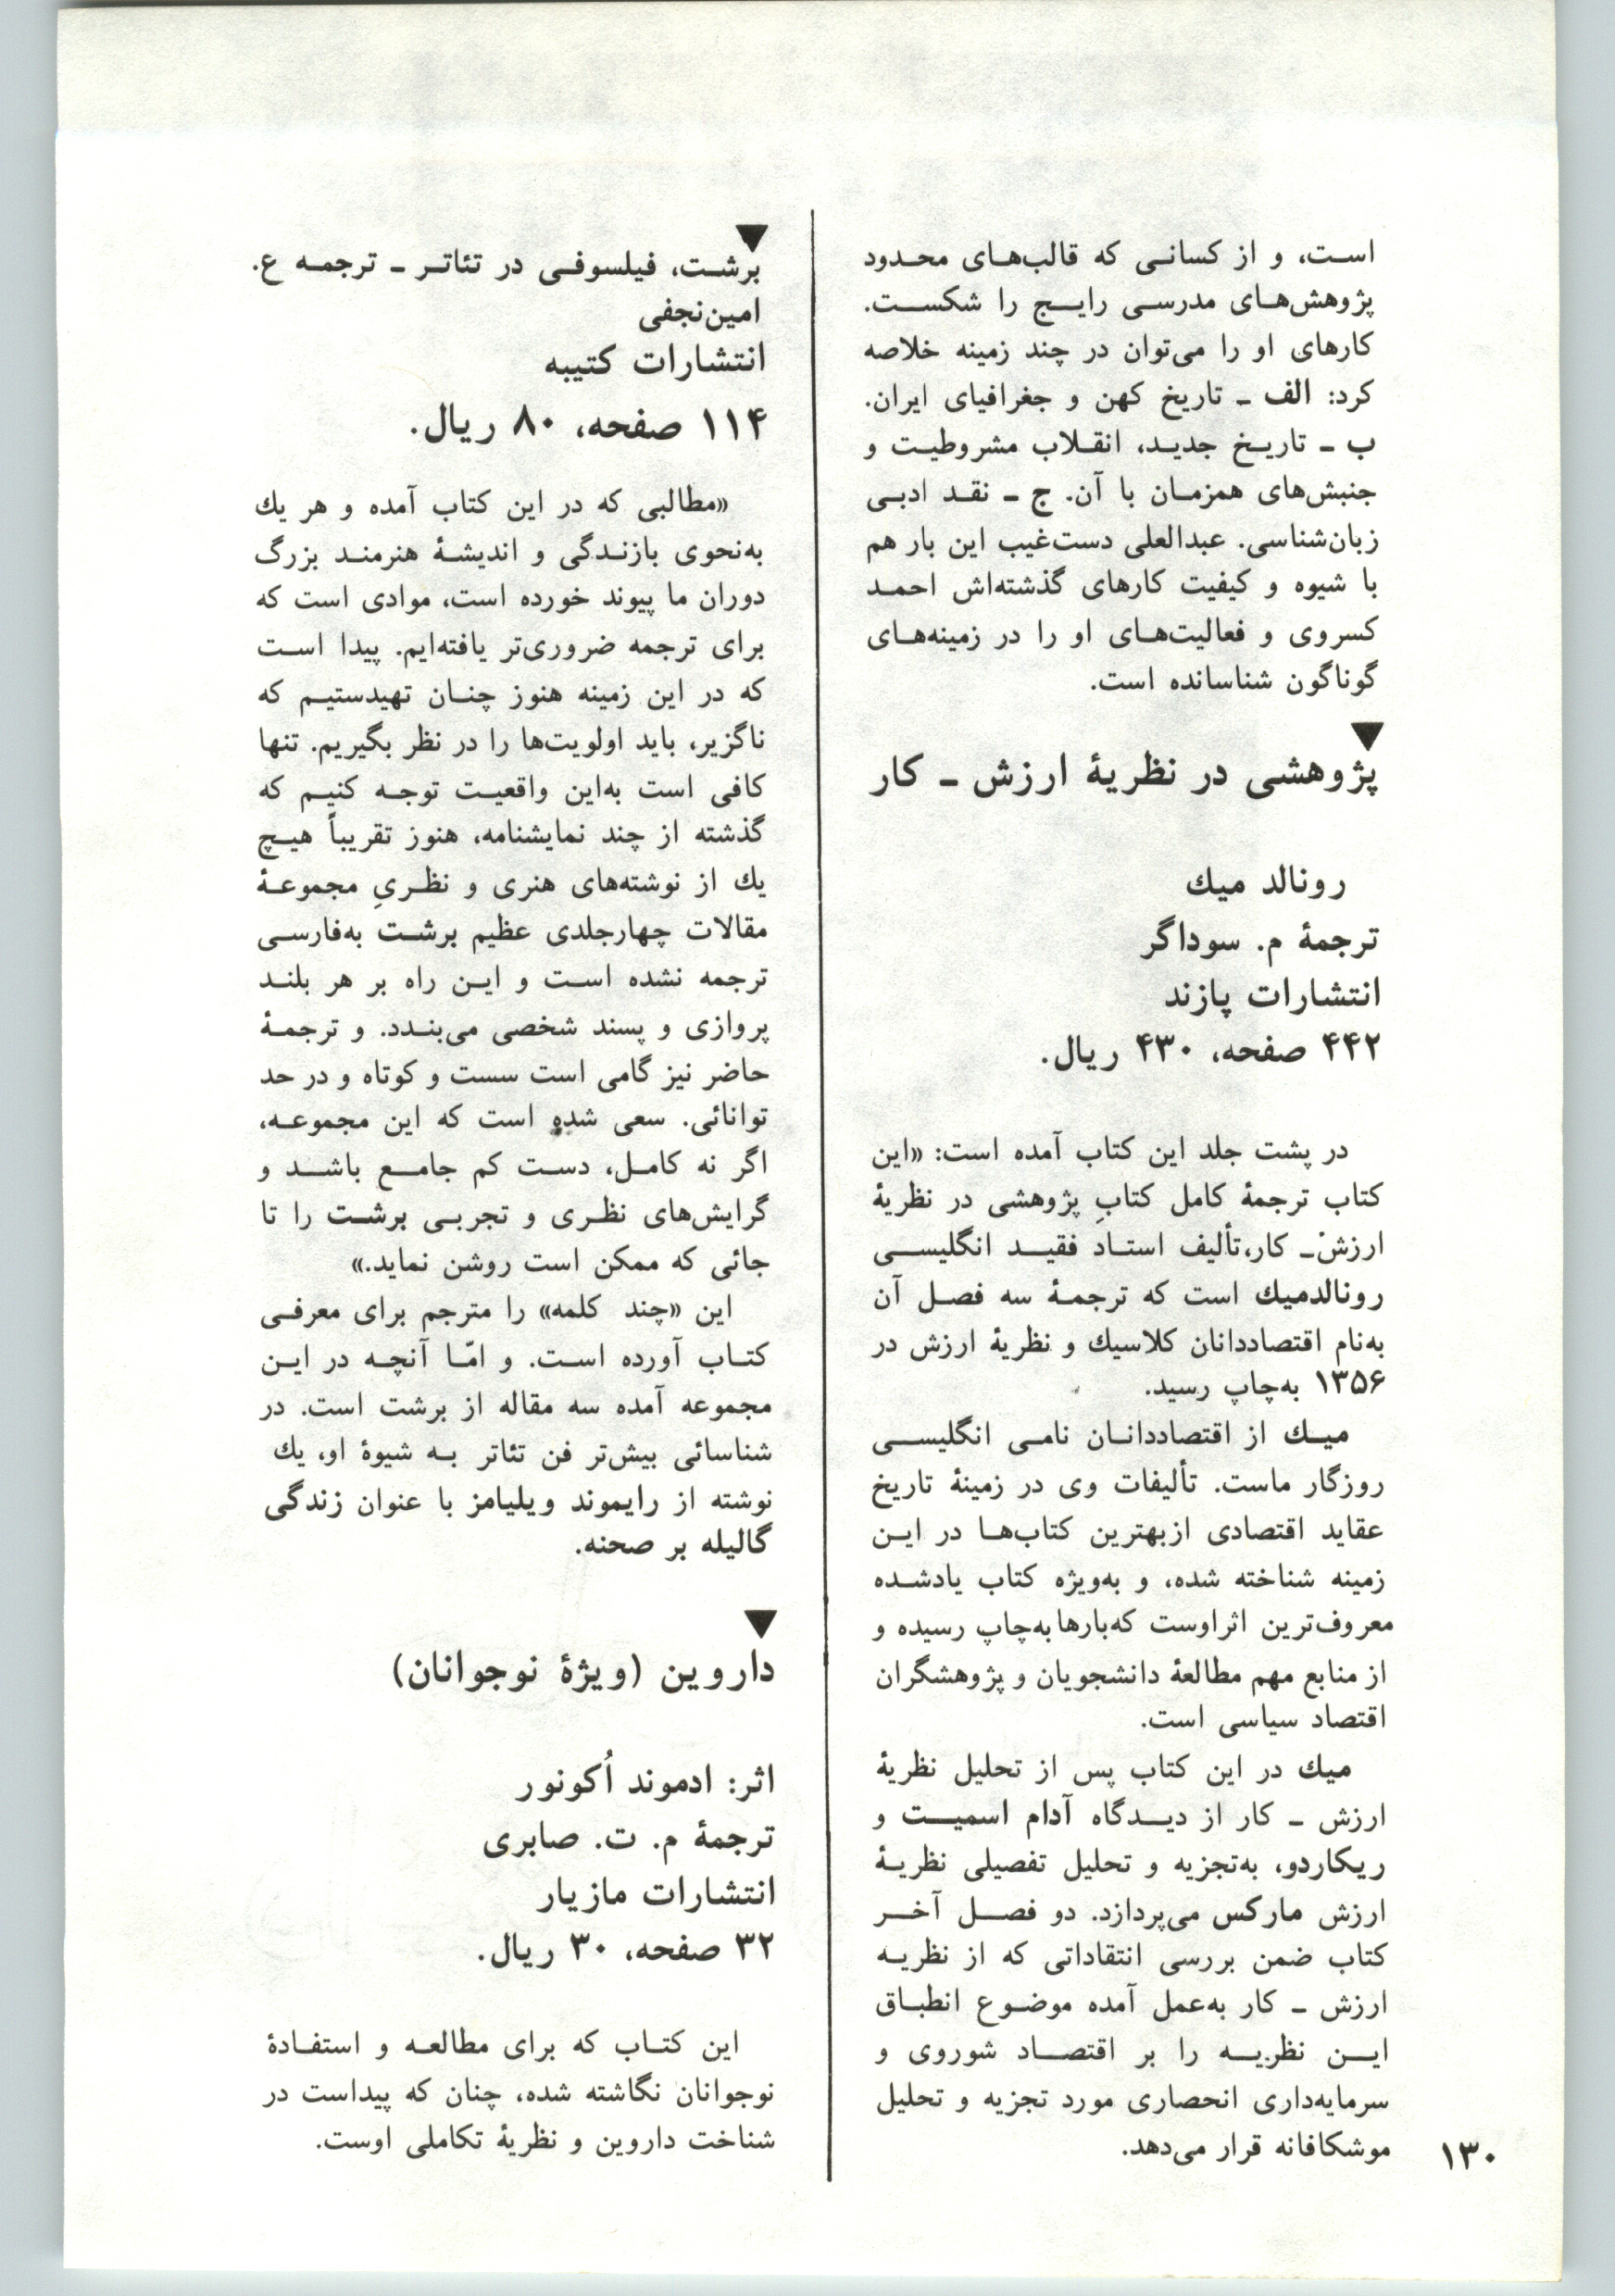 است، و از کسانی که قالب‌های محدود
پژوهش‌های مدرسی رایج را شکست.
کارهای او را می‌توان در چند زمینه خلاصه
کرد: الف ـ تاریخ کهن و جغرافیای ایران.
ب ـ تاریخ جدید، انقلاب مشروطیت و
جنبش‌های همزمان با آن. ج ـ نقد ادبی
زبان‌شناسی. عبدالعلی دست‌غیب این بار هم
با شیوه و کیفیت کارهای گذشته‌اش احمد
کسروی و فعالیت‌های او را در زمینه‌های
گوناگون شناسانده است.
▼
پژوهشی در نظریهٔ ارزش ـ کار
رونالد میك
ترجمهٔ م. سوداگر
انتشارات پازند
۴۴۲ صفحه، ۴۳۰ ریال.
در پشت جلد این کتاب آمده است: «این
کتاب ترجمهٔ کامل کتابِ پژوهشی در نظریهٔ
ارزش ـ کار، تألیف استاد فقید انگلیسی
رونالدمیك است که ترجمهٔ سه فصل آن
به‌نام اقتصاددانان کلاسیك و نظریهٔ ارزش در
۱۳۵۶ به‌چاپ رسید.
میك از اقتصاددانان نامی انگلیسی
روزگار ماست. تألیفات وی در زمینهٔ تاریخ
عقاید اقتصادی ازبهترین کتاب‌ها در این
زمینه شناخته شده، و به‌ویژه کتاب یادشده
معروف‌ترین اثراوست که‌بارها به‌چاپ رسیده و
از منابع مهم مطالعهٔ دانشجویان و پژوهشگران
اقتصاد سیاسی است.
میك در این کتاب پس از تحلیل نظریهٔ
ارزش ـ کار از دیدگاه آدام اسمیت و
ریکاردو، به‌تجزیه و تحلیل تفصیلی نظریهٔ
ارزش مارکس می‌پردازد. دو فصل آخر
کتاب ضمن بررسی انتقاداتی که از نظریه
ارزش ـ کار به‌عمل آمده موضوع انطباق
این نظریه را بر اقتصاد شوروی و
سرمایه‌داری انحصاری مورد تجزیه و تحلیل
موشکافانه قرار می‌دهد.
۱۳۰
▼
برشت، فیلسوفی در تئاتر ـ ترجمه ع.
امین‌نجفی
انتشارات کتیبه
۱۱۴ صفحه، ۸۰ ریال.
«مطالبی که در این کتاب آمده و هر یك
به‌نحوی بازندگی و اندیشهٔ هنرمند بزرگ
دوران ما پیوند خورده است، موادی است که
برای ترجمه ضروری‌تر یافته‌ایم. پیدا است
که در این زمینه هنوز چنان تهیدستیم که
ناگزیر، باید اولویت‌ها را در نظر بگیریم. تنها
کافی است به‌این واقعیت توجه کنیم که
گذشته از چند نمایشنامه، هنوز تقریباً هیچ
یك از نوشته‌های هنری و نظریِ مجموعهٔ
مقالات چهارجلدی عظیم برشت به‌فارسی
ترجمه نشده است و این راه بر هر بلند
پروازی و پسند شخصی می‌بندد. و ترجمهٔ
حاضر نیز گامی است سست و کوتاه و در حد
توانائی. سعی شده است که این مجموعه،
اگر نه کامل، دست کم جامع باشد و
گرایش‌های نظری و تجربی برشت را تا
جائی که ممکن است روشن نماید.»
این «چند کلمه» را مترجم برای معرفی
کتاب آورده است. و امّا آنچه در این
مجموعه آمده سه مقاله از برشت است. در
شناسائی بیش‌تر فن تئاتر به شیوهٔ او، یك
نوشته از رایموند ویلیامز با عنوان زندگی
گالیله بر صحنه.
▼
داروین (ویژهٔ نوجوانان)
اثر: ادموند اُکونور
ترجمهٔ م. ت. صابری
انتشارات مازیار
۳۲ صفحه، ۳۰ ریال.
این کتاب که برای مطالعه و استفادهٔ
نوجوانان نگاشته شده، چنان که پیداست در
شناخت داروین و نظریهٔ تکاملی اوست.